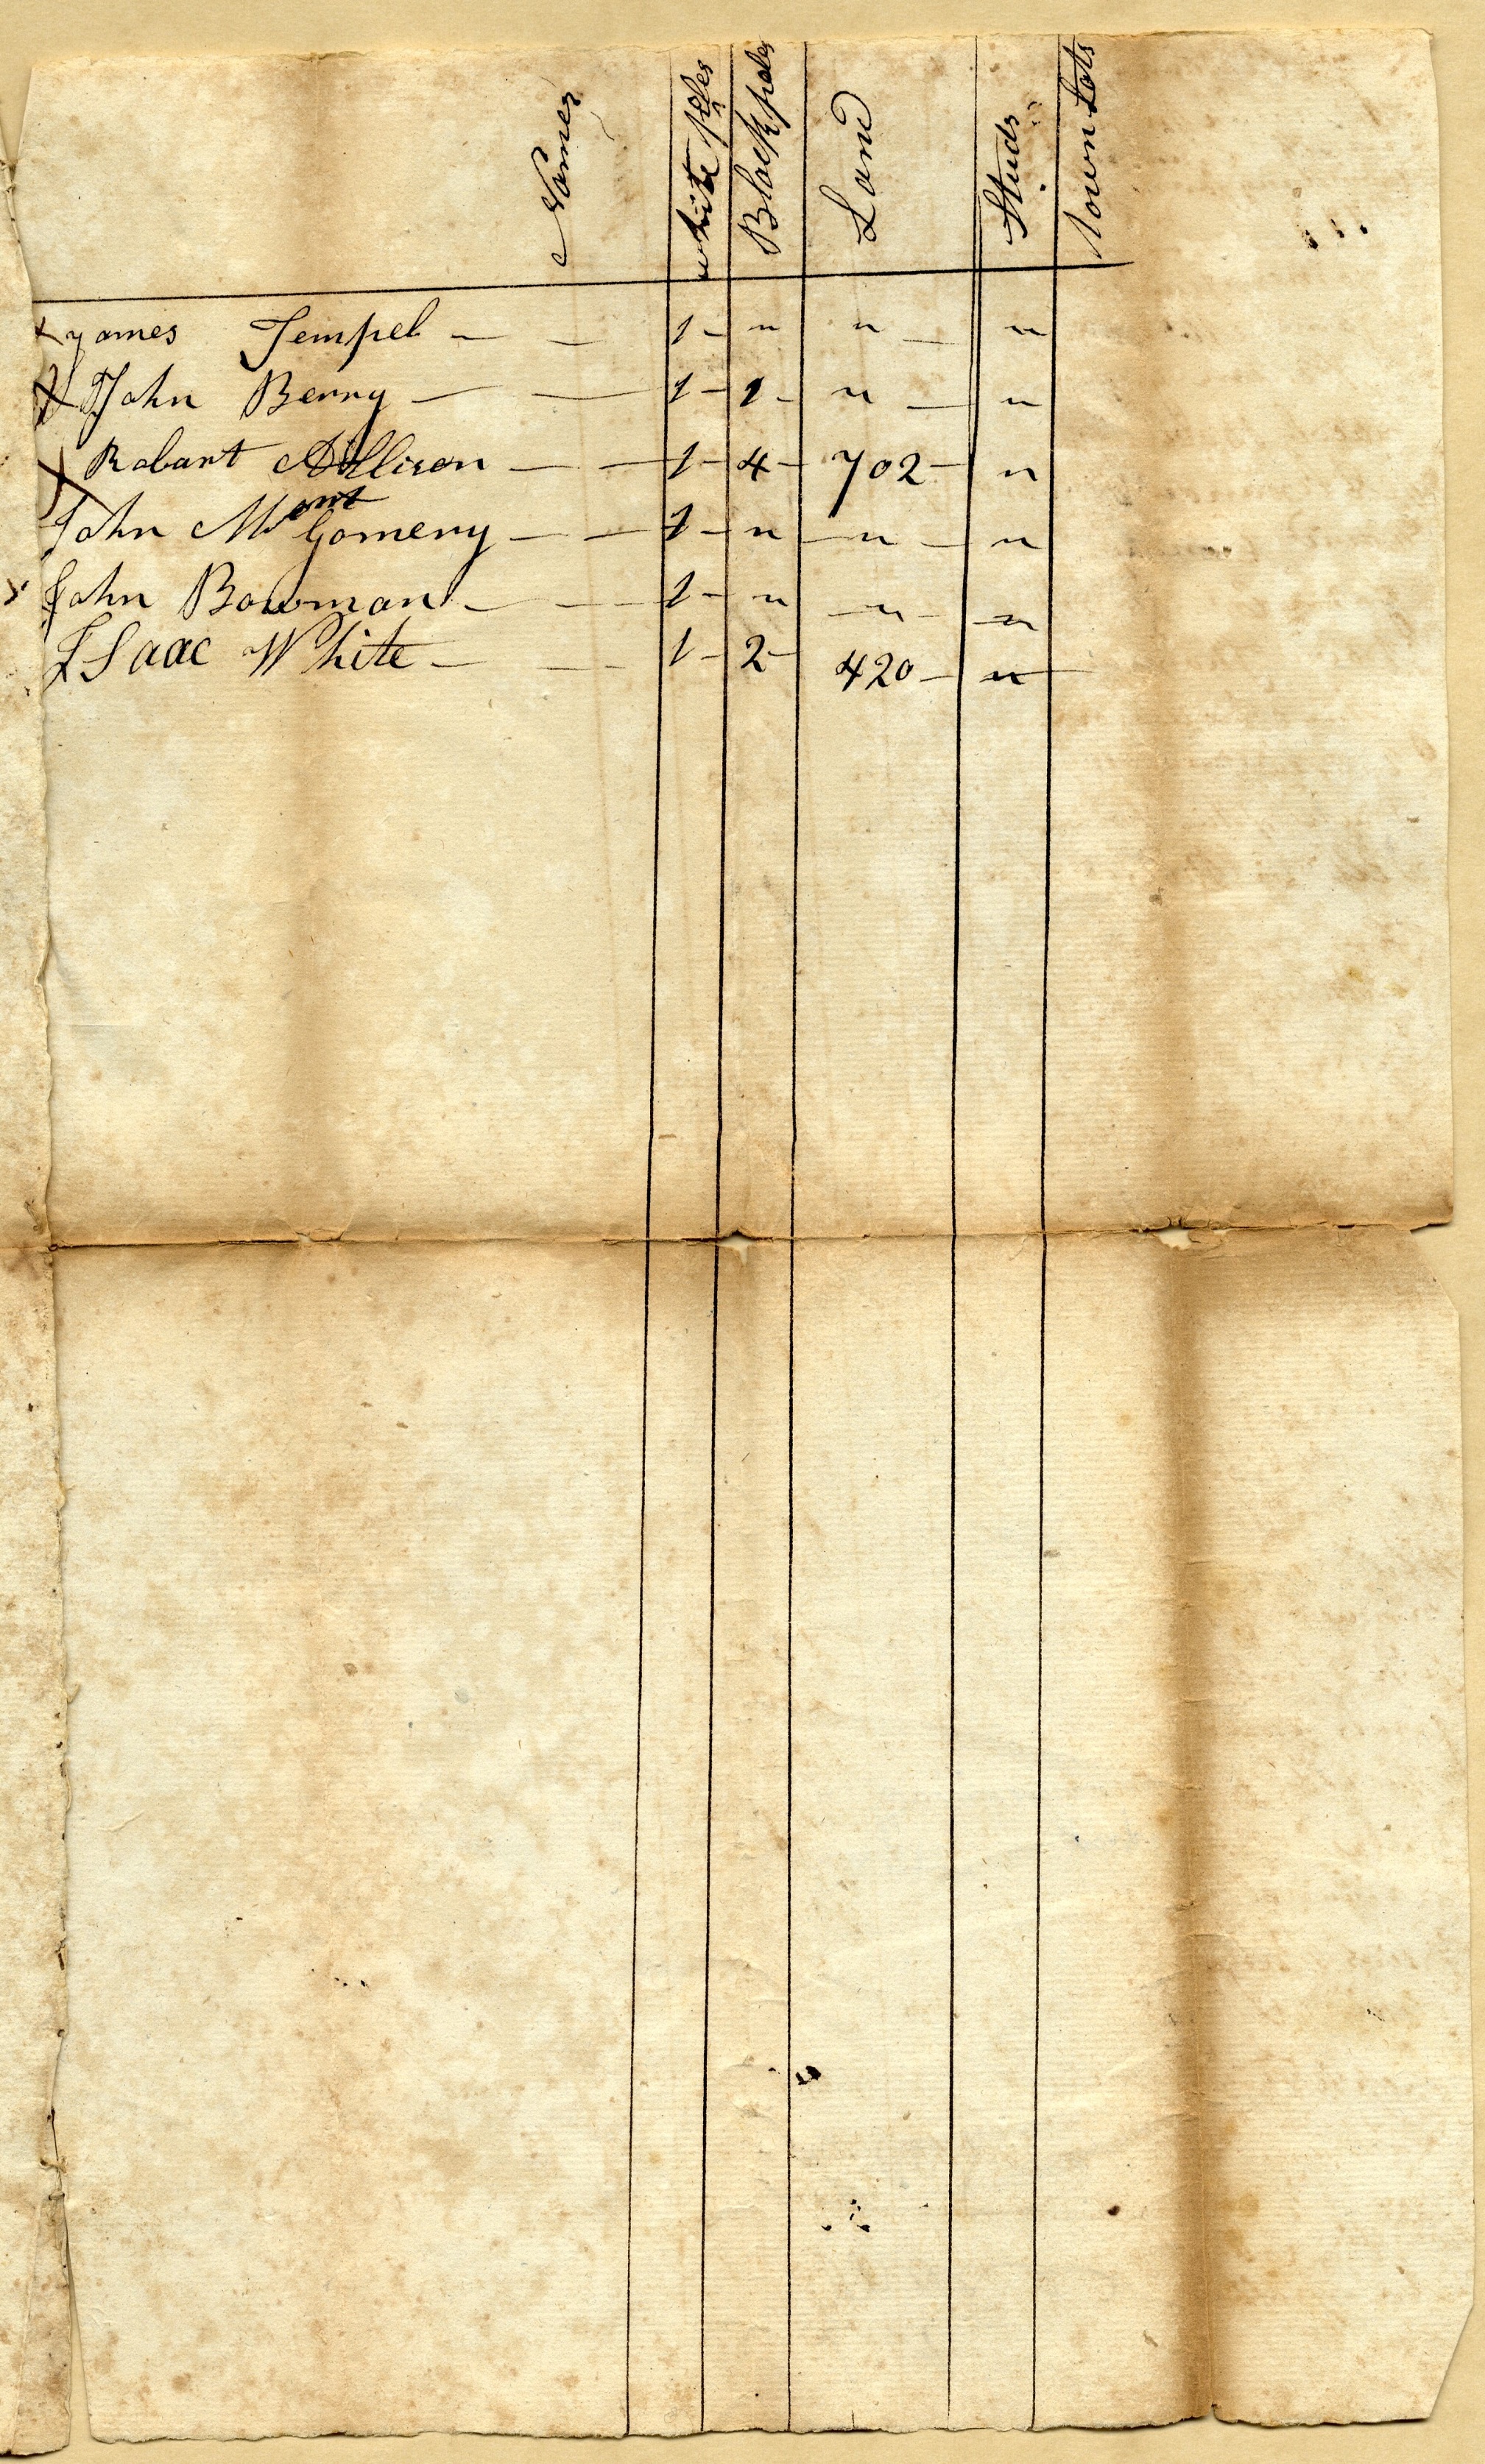 Names white poles Black poles Land Studs Town Lots
x James Tempel — — 1 – " " — "
x John Berry — — 1 – 1 – " — "
x Robart Allison — — 1 – 4 – 702 – "
John Mont Gomery — — 1 – " — " — "
x John Bowman — — 1 – " — " — "
Isaac White — — 1 – 2 – 420 — "